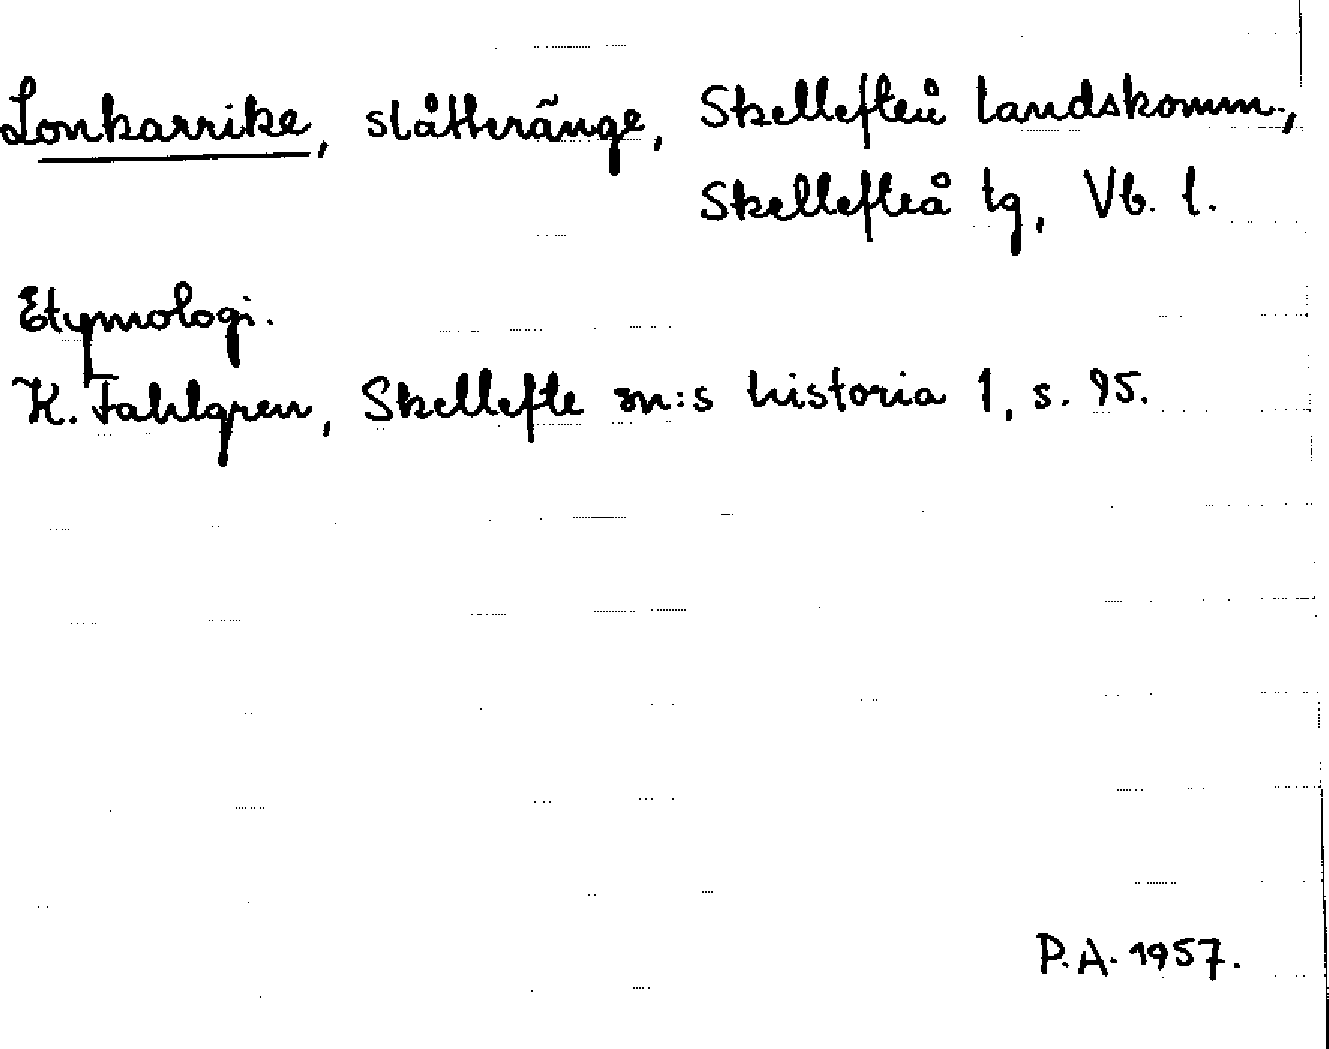 Lonkarrike, slåtteränge, Skellefteå landskomm.,
Skellefteå tg, Vb. l.
Etymologi.
K. Fahlgren, Skellefte sn:s historia 1, s. 95.
P.A. 1957.